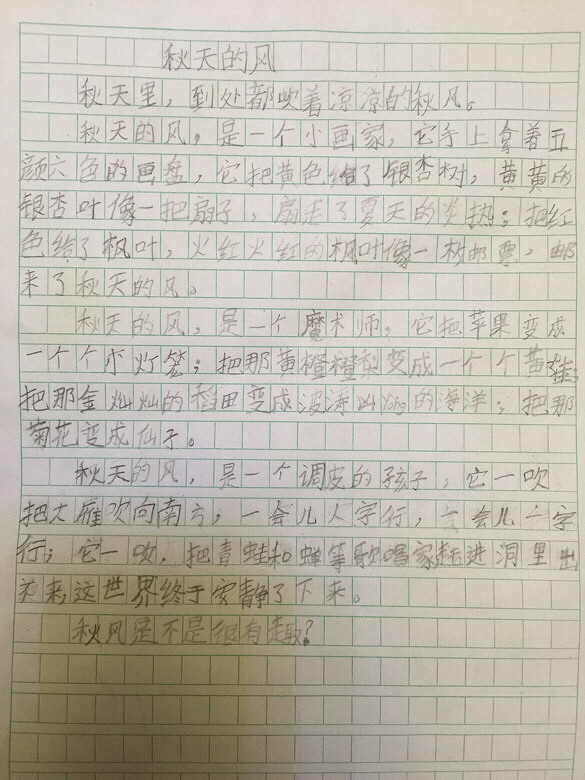 秋天的风
秋天里，到处都吹着凉凉的秋风。
秋天的风，是一个小画家，它手上拿着五
颜六色的画盘，它把黄色给了银杏树，黄黄的
银杏叶像一把扇子，扇走了夏天的炎热；把红
色给了枫叶，火红火红的枫叶像一枚邮票，邮
来了秋天的风。
秋天的风，是一个魔术师，它把苹果变成
一个个小灯笼；把那黄橙橙梨变成一个个黄娃；
把那金灿灿的稻田变成波涛凶yong的海洋；把那
菊花变成仙子。
秋天的风，是一个调皮的孩子，它一吹
把大雁吹向南方，一会儿人字行，一会儿一字
行；它一吹，把青蛙和蝉等歌唱家赶进洞里出
来，这世界终于安静了下来。
秋风是不是很有趣？